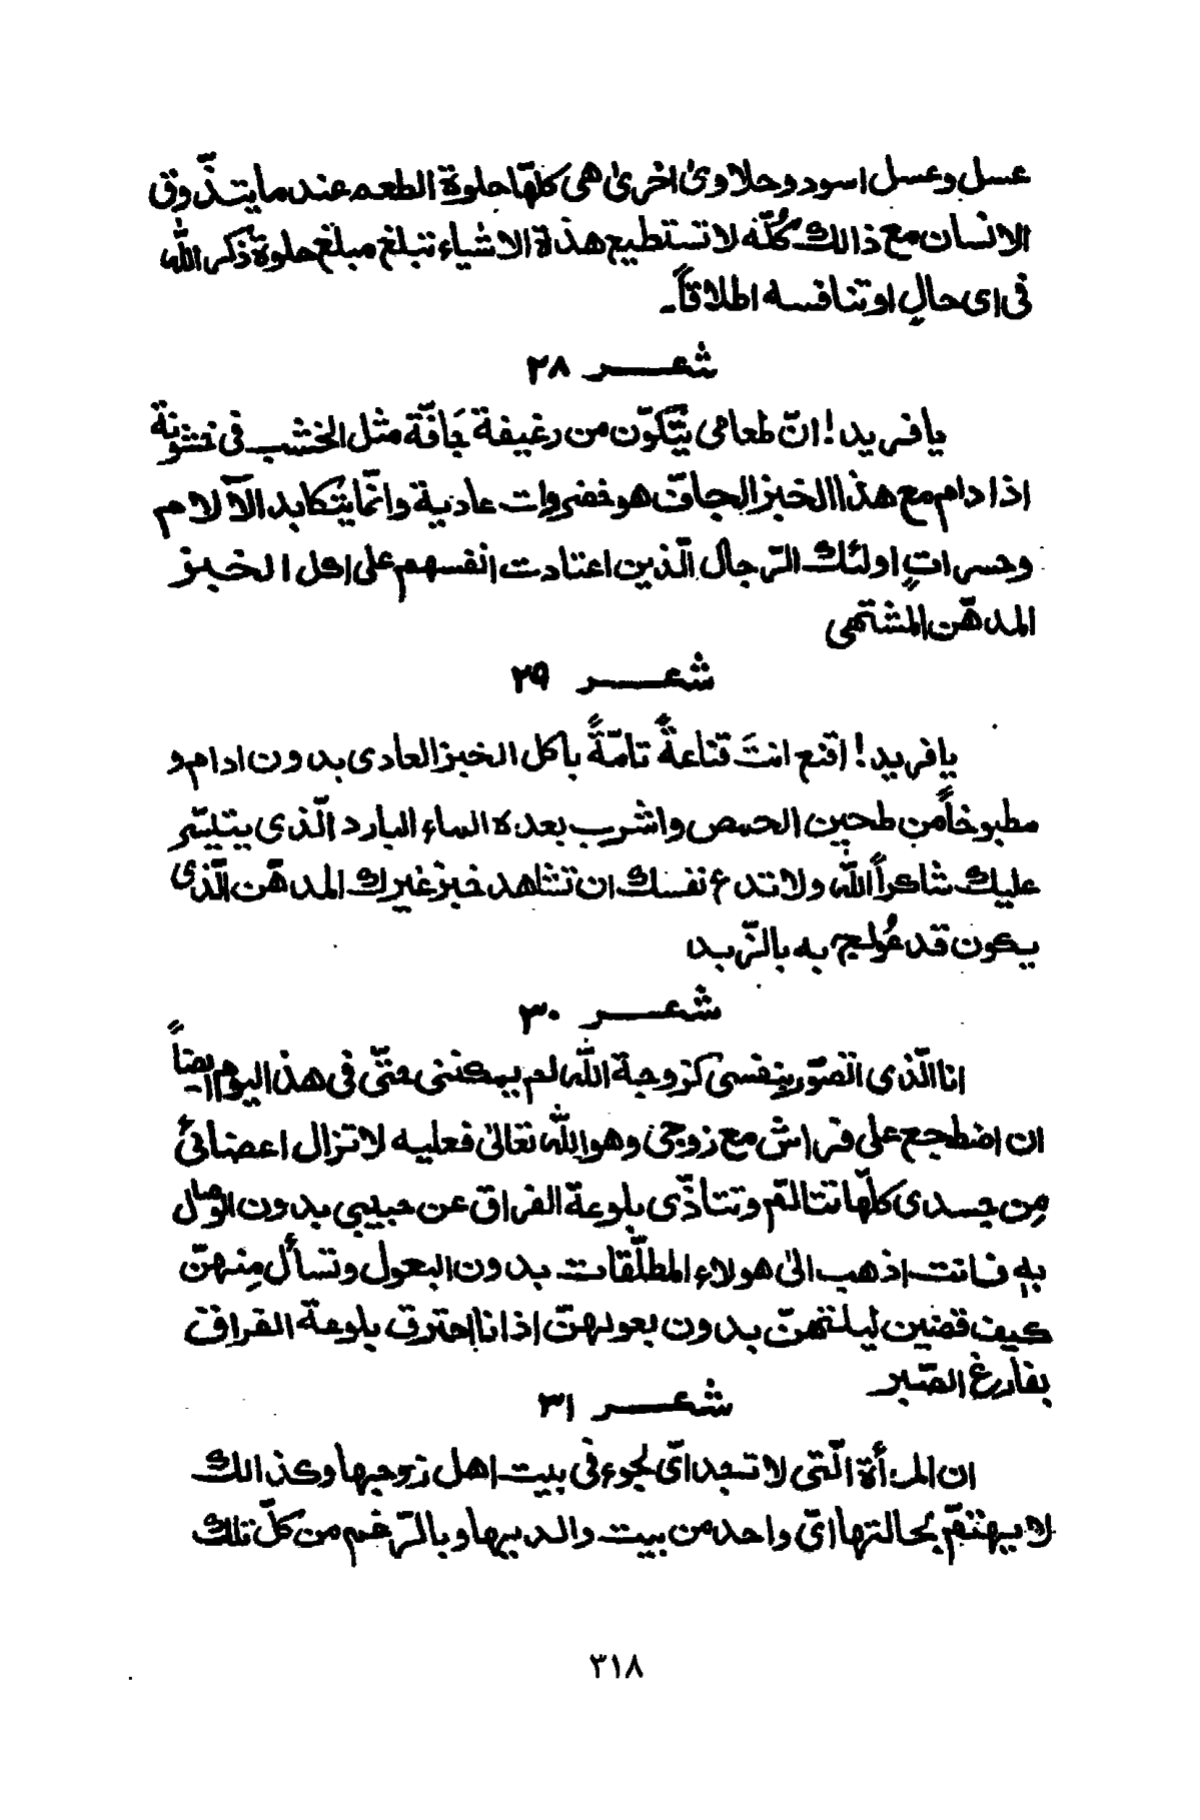 عسل وعسل اسود وحلاوىٰ اخرىٰ هى كلّها حلوة الطعم عند ما يتذّوق
الانسان مع ذالك كُلّه لا تستطيع هذة الاشياء تبلغ مبلغ حلوة ذكر اللّٰه
فى اى حالٍ او تنافسه اطلاقاً۔
شعر ٢٨
يا فريد! انّ طعامى يتّكوّن من رغيفة جَافّة مثل الخشب فى خشونة
اذا دام مع هذا الخبز الجافّ هو خضروات عادية وانّما يتكابد الآلام
وحسراتٍ اولئك الرّجال الّذين اعتادت انفسهم على اكل الخبز
المدهّن المشتهى
شعر ٢٩
يا فريد! اقنع انتَ قناعةً تامّةً باكل الخبز العادى بدون ادام و
مطبوخاً من طحين الحمص واشرب بعده الماء البارد الّذى يتيسّر
عليك شاكراً للّٰه ولا تدع نفسك ان تشاهد خبز غيرك المدهّن الّذى
يكون قد عُولج به بالزّبد
شعر ٣٠
انا الّذى اتصوّر بنفسى كزوجة اللّٰه لم يمكننى حتّى فى هذا اليوم ايضاً
ان اضطجع على فراش مع زوجى وهو اللّٰه تعالىٰ فعليه لا تزال اعضائى
مِن جسدى كلّها تتالّم وتتاذّى بلوعة الفراق عن حبيبي بدون الوصال
بهٖ فانت اذهب الىٰ هولاء المطلّقات بدون البعول وتسأل مِنهنّ
كيف قضين ليلتهنّ بدون بعولهنّ اذ انا احترق بلوعة الفراق
بفارغ الصّبر
شعر ٣١
ان المرأة الّتى لا تجد اىّ لجوء فى بيت اهل زوجها وكذالك
لا يهتمّ بحالتها اىّ واحد من بيت والديها وبالرّغم من كلّ تلك
٣١٨